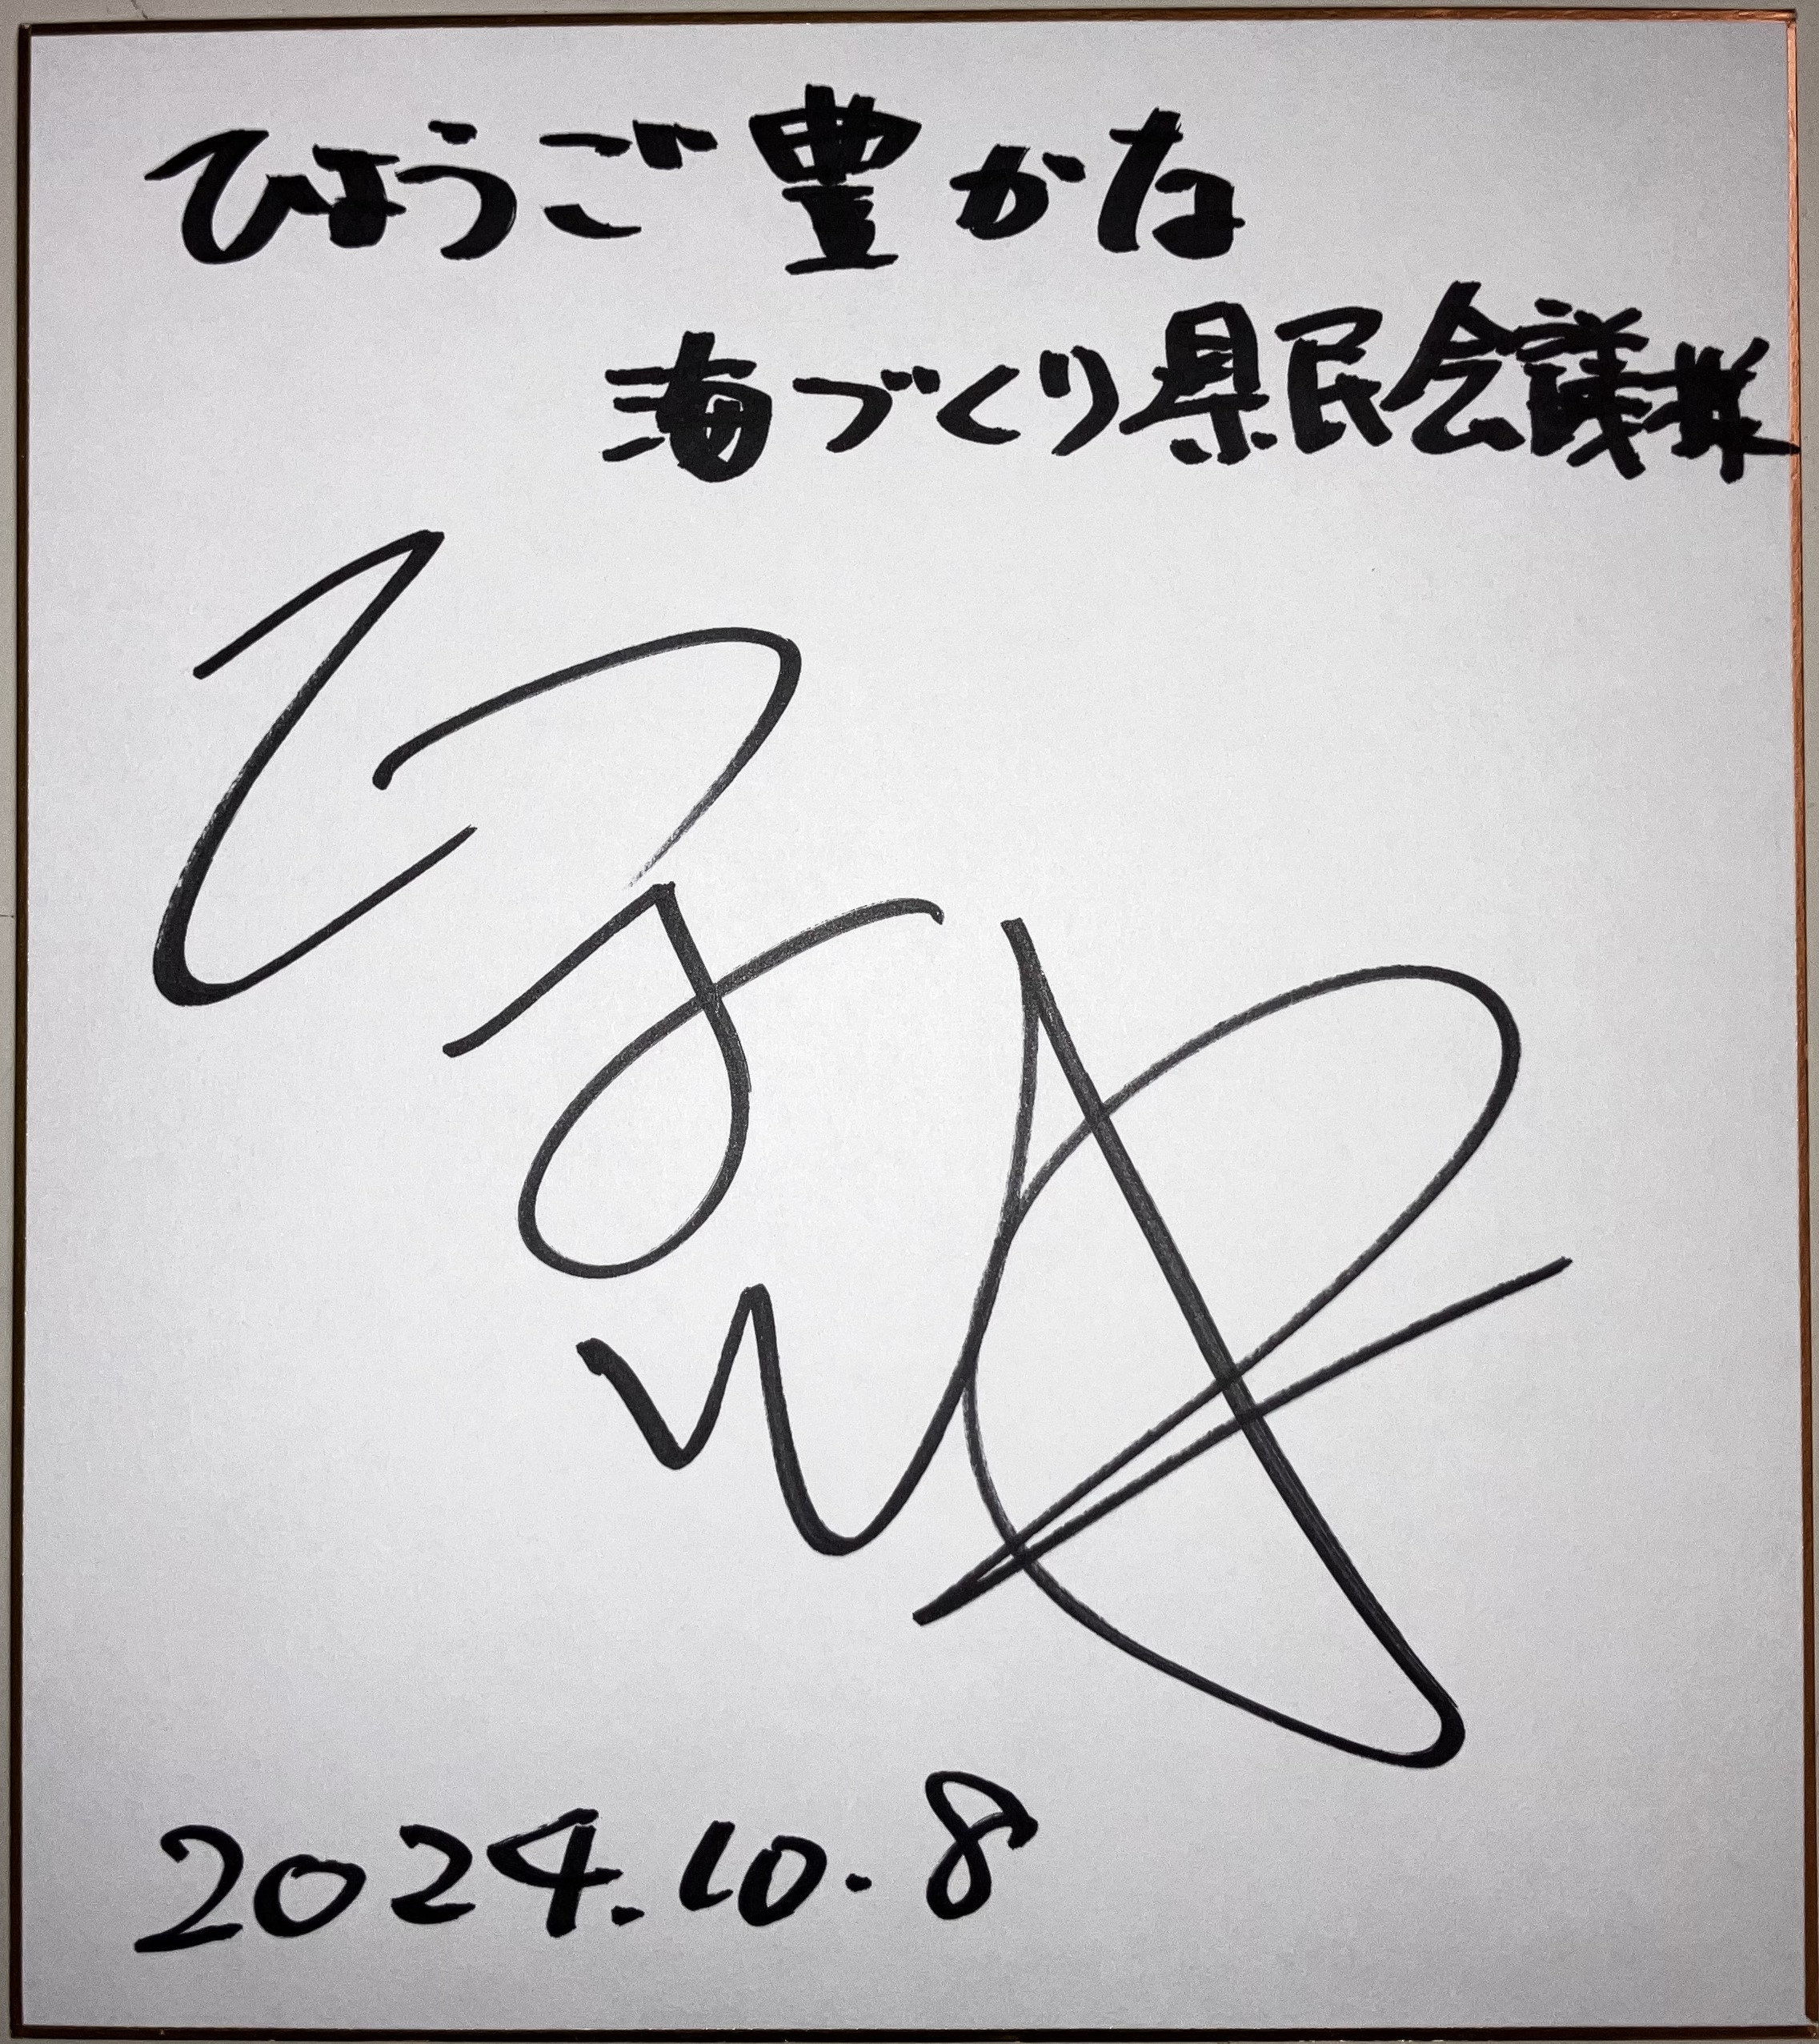 ひょうご豊かな
海づくり県民会議様
2024.10.8